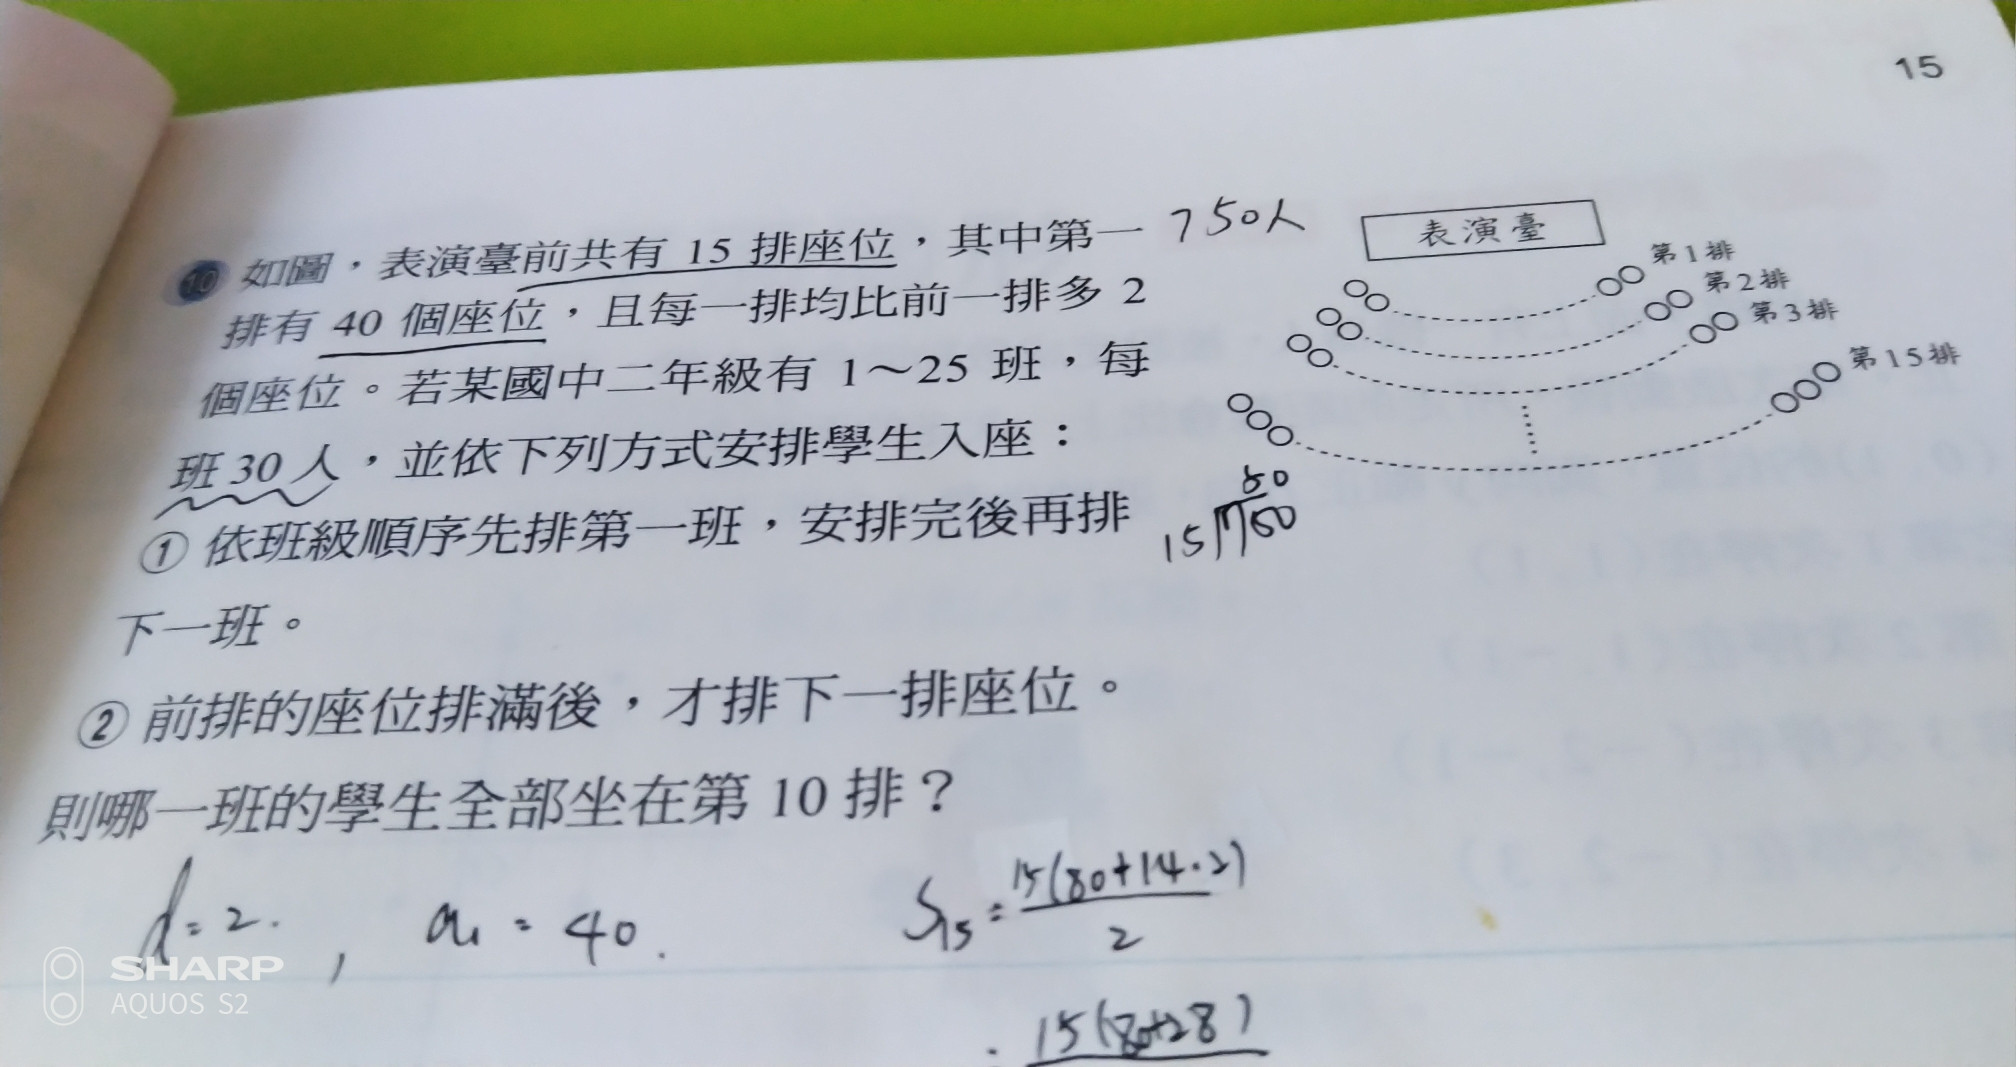 15
10 如圖，表演臺前共有 15 排座位，其中第一
排有 40 個座位，且每一排均比前一排多 2
個座位。若某國中二年級有 1～25 班，每
班 30 人，並依下列方式安排學生入座：
① 依班級順序先排第一班，安排完後再排
下一班。
② 前排的座位排滿後，才排下一排座位。
則哪一班的學生全部坐在第 10 排？
750人
表演臺
第1排
第2排
第3排
第15排
50
15
d=2. , a₁=40.
S₁₅=15(80+14·2)
2
=15(80+28)
SHARP
AQUOS S2